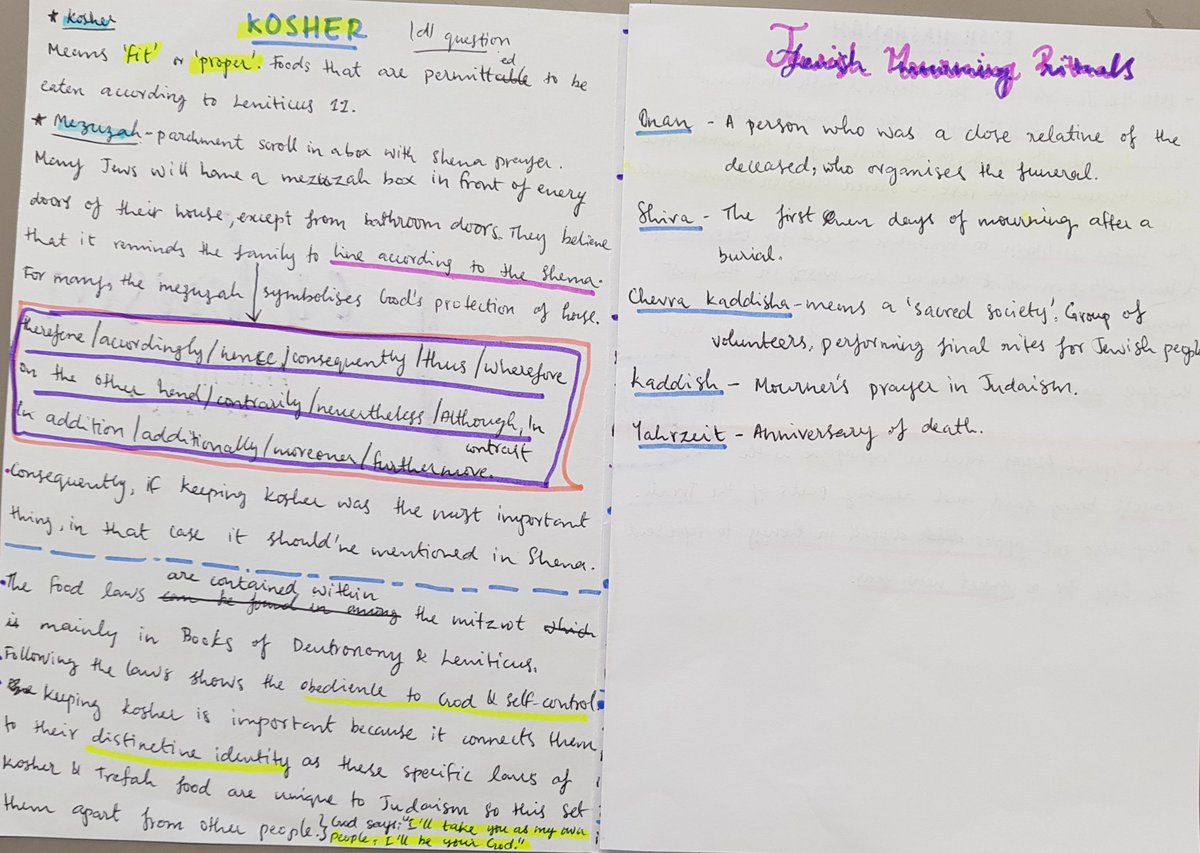 ★ Kosher
KOSHER
1d) question
Means 'fit' or 'proper'. Foods that are permitted to be
eaten according to Leviticus 11.
★ Mezuzah - parchment scroll in a box with Shema prayer.
Many Jews will have a mezuzah box in front of every
doors of their house, except from bathroom doors. They believe
that it reminds the family to live according to the Shema.
For many, the mezuzah symbolises God's protection of house.
therefore/accordingly/hence/consequently/thus/wherefore
on the other hand/contrarily/nevertheless/Although, In
contrast
In addition/additionally/moreover/furthermore.
• Consequently, if keeping kosher was the most important
thing, in that case it should've mentioned in Shema.
are contained within
• The food laws can be found in among the mitzvot which
is mainly in Books of Deutronomy & Leviticus.
• Following the laws shows the obedience to God & self-control
• Keeping kosher is important because it connects them
to their distinctive identity as these specific laws of
Kosher & Trefah food are unique to Judaism so this set
them apart from other people.} God says: "I'll take you as my own
people, I'll be your God."
Jewish Mourning Rituals
Onan - A person who was a close relative of the
deceased, who organises the funeral.
Shiva - The first seven days of mourning after a
burial.
Chevra Kaddisha - means a 'sacred society'. Group of
volunteers, performing final rites for Jewish people
Kaddish - Mourner's prayer in Judaism.
Yahrzeit - Anniversary of death.